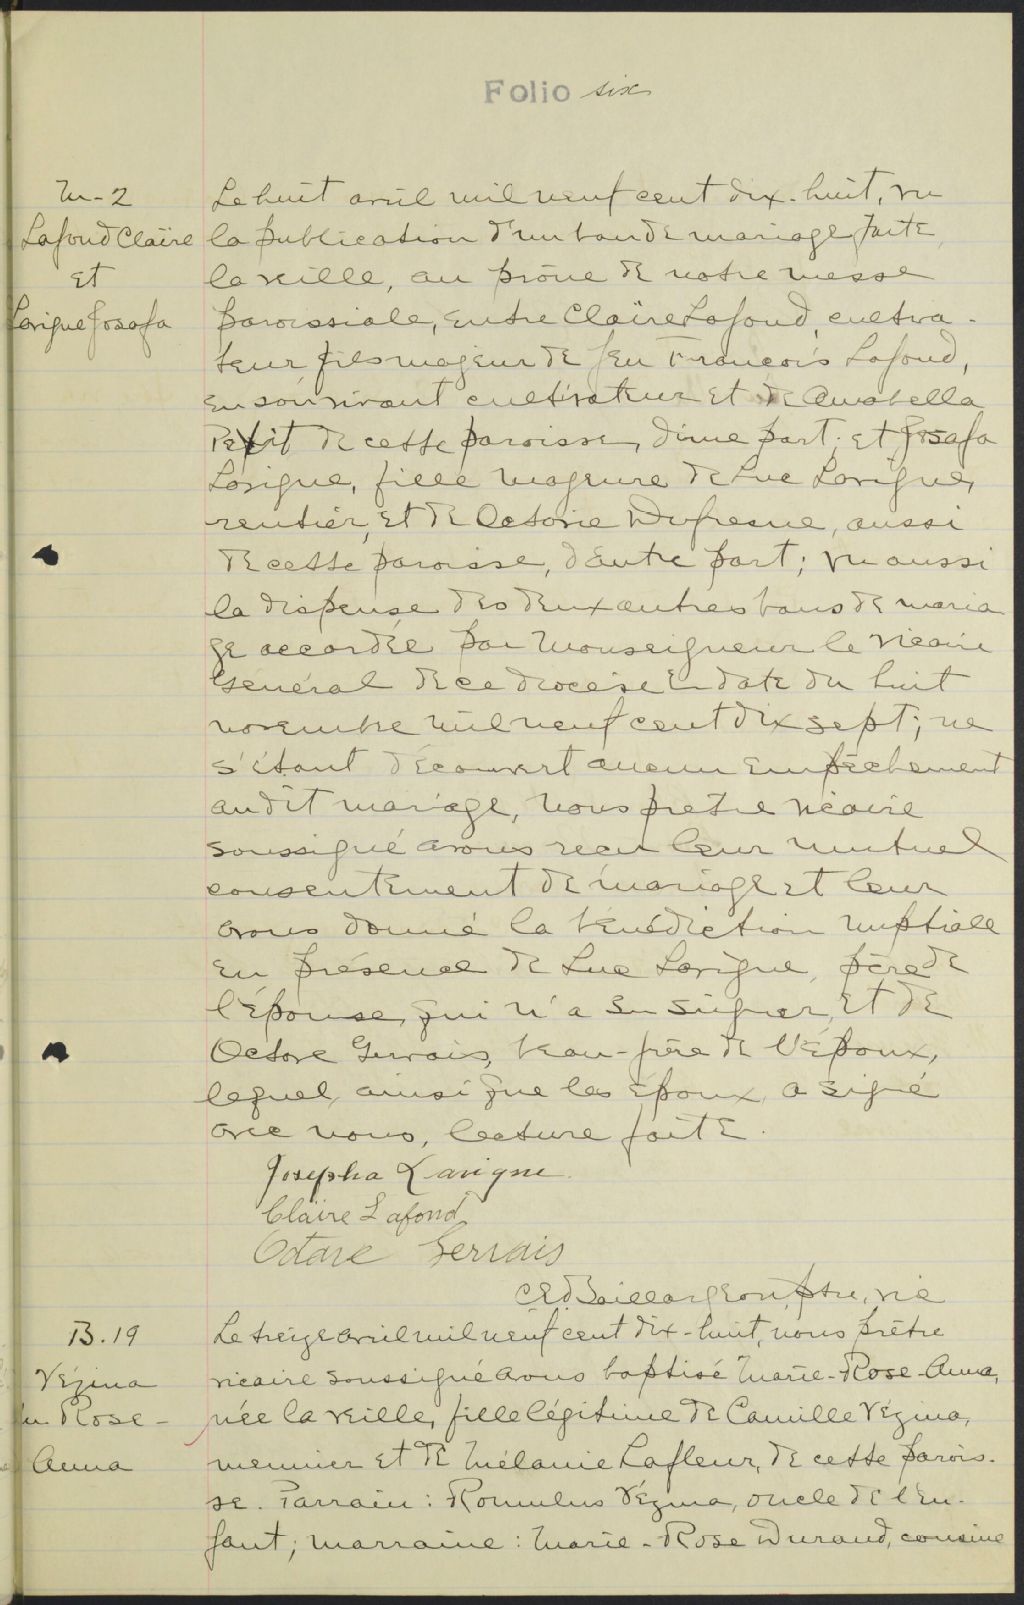 Folio six
M-2
Lafond Claïre
et
Lavigne Josafa
Le huit avril mil neuf cent dix-huit, vu
la publication d'un ban de mariage faite
la veille, au prône de notre messe
paroissiale, entre Claïre Lafond, cultiva-
teur fils majeur de feu François Lafond,
en son vivant cultivateur et de Amabella
Petit de cette paroisse, d'une part; et Josafa
Lavigne, fille majeure de Luc Lavigne,
rentier, et de Octavie Dufresne, aussi
de cette paroisse, d'autre part; vu aussi
la dispense des deux autres bans de maria
ge accordée par Monseigneur le Vicaire
Général de ce diocèse en date du huit
novembre mil neuf cent dix sept; ne
s'étant découvert aucun empêchement
au dit mariage, Nous prêtre vicaire
soussigné avons reçu leur mutuel
consentement de mariage et leur
avons donné la bénédiction nuptiale
en présence de Luc Lavigne, père de
l'épouse, qui n'a su signer, et de
Octave Gervais, beau-frère de l'époux,
lequel, ainsi que les époux, a signé
avec nous, lecture faite.
Josepha Lavigne.
Claïre Lafond
Octave Gervais
C.E.D. Baillargeon, ptre, vic
B. 19
Vézina
M Rose-
Anna
Le treize avril mil neuf cent dix-huit, nous prêtre
vicaire soussigné avons baptisé Marie-Rose-Anna,
née la veille, fille légitime de Camille Vézina,
meunier et de Mélanie Lafleur, de cette parois-
se. Parrain: Romulus Vézina, oncle de l'en-
fant; marraine: Marie-Rose Durand, cousine